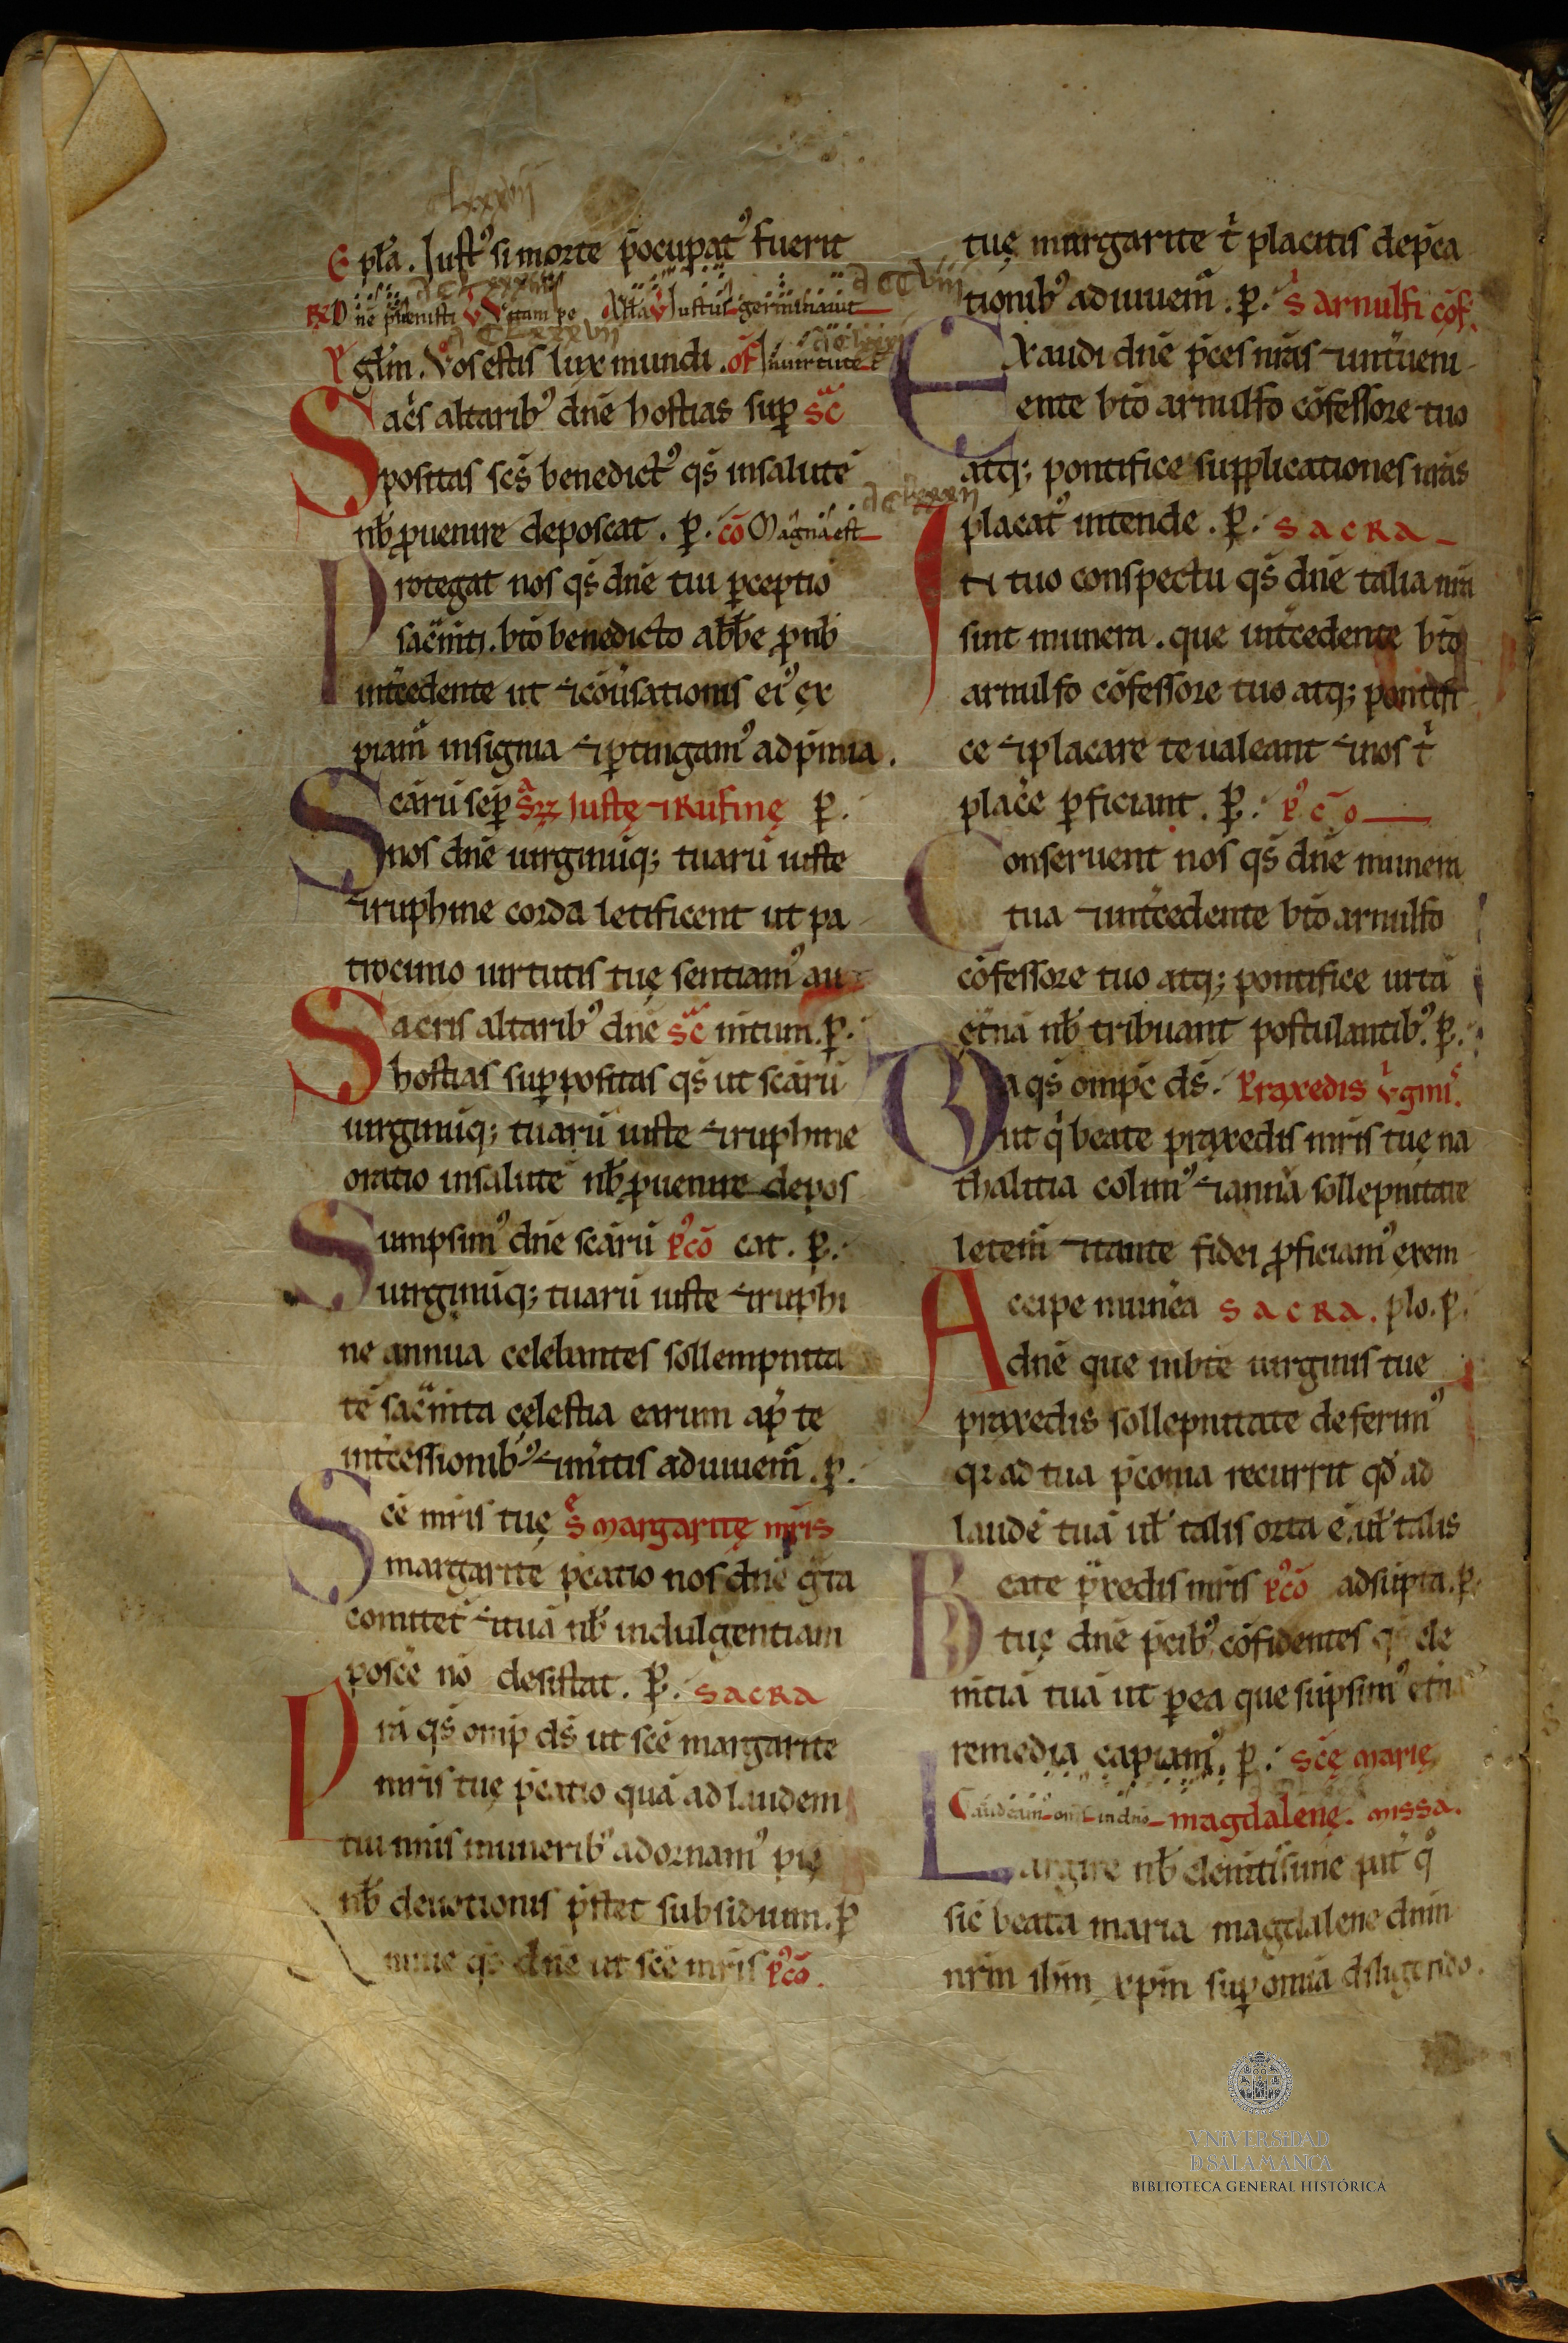 E pl̃a. Iustꝰ si morte p̄ocupatꝰ fuerit
R͂ Dñe p̄uenisti V̆ Vitam pe Alła V̆ Iustus germinauit
euₐgl̃m. Vos estis lux mundi. of̄ In uirtute t
Sac̃s altaribꝰ dñe hostias suꝑ sc̃
positas sc̃s benedictꝰ qs̃ in salutē
nb̃ ꝓuenire deposcat. ꝑ. cō Magna est
Protegat nos qs̃ dñe tui ꝑceptio
sac̃mti. btō benedicto abb̃e ꝓ nb̃
int̃cedente ut ⁊ cōuersationis eiꝰ ex
piam̃ insignia ⁊ ꝑtingamꝰ ad p̄mia.
Sc̃arū seꝑ s̃ꝝ Iustę ⁊ Rufinę ꝑ.
nos dñe uirginūq; tuarū iuste
⁊ ruphine corda letificent ut pa
trocinio uirtutis tuę sentiamꝰ au
Sacris altaribꝰ dñe sc̃ nitum. ꝑ.
hostias suꝑpositas qs̃ ut sc̃arū
uirginūq; tuarū iuste ⁊ ruphine
oratio in salutē nb̃ ꝓuenire depos
Sumpsimꝰ dñe sc̃arū pꝰcō cat. ꝑ.
uirginūq; tuarū iuste ⁊ ruphi
ne annua celebrantes sollempnita
tē sac̃mta cęlestia earum ap̃ te
int̃cessionibꝰ ⁊ m̃itis adiuuem̃. ꝑ.
Sc̃e mr̃is tuę s̃ Margaritę mr̃is
margarite p̄catio nos dñe gr̃a
comitet̃ ⁊ tuā nb̃ indulgentiam
posc̃e nō desistat. ꝑ. SACRA
Pr̃a qs̃ omp̃ ds̃ ut sc̃e margarite
mr̃is tuę p̄catio quā ad laudem
tui nr̃is muneribꝰ adornamꝰ pię
nb̃ deuotionis p̄stet subsidium. ꝑ
qs̃ dñe ut sc̃e mr̃is pꝰcō.
tuę margarite t̃ placitis dep̄ca
tionibꝰ adiuuem̃. ꝑ. s̃ Arnulfi cōf.
EXaudi dñe p̄ces nr̃as ⁊ int̃ueni
ente btō arnulfo cōfessore tuo
atq; pontifice supplicationes nr̃as
placatꝰ intende. ꝑ. SACRA
IN tuo conspectu qs̃ dñe talia nr̃a
sint munera. que int̃cedente btō
arnulfo cōfessore tuo atq; pontifi
ce ⁊ placare te ualeant ⁊ nos t̃
plac̃e ꝑficiant. ꝑ. pꝰcō
Conseruent nos qs̃ dñe munera
tua ⁊ int̃cedente btō arnulfo
cōfessore tuo atq; pontifice uitā
ęt̃nā nb̃ tribuant postulantibꝰ. ꝑ.
Da qs̃ omp̃c ds̃. Praxedis v̆ginĩs.
ut q̃ beate praxedis mr̃is tuę na
thalitia colimꝰ ⁊ annua sollepnitate
letem̃ ⁊ tante fidei ꝓficiamꝰ exem
Accipe munera SACRA. plo. ꝑ.
dñe que in btę uirginis tue
praxedis sollepnitate deferimꝰ
qr ad tua p̄conia recurrit qd̃ ad
laudē tuā uł talis orta ē. uł talis
Beate p̃xedis mr̃is pꝰcō adsūpta. ꝑ.
tuę dñe p̄cibꝰ cōfidentes qs̃ cle
m̃tiā tuā ut ꝑ ea que sūpsimꝰ et̃na
remedia capiamꝰ. ꝑ. Scę Marię
Gaudeamꝰ om̃s in dño Magdalenę. Missa.
Largire nb̃ clem̃tissime pat̃ qͦ
sic̃ beata maria magdalene dnm̃
nr̃m ih̃m xp̃m suꝑ omnia diligendo.
VNiVERSiDAD
D SALAMANCA
BIBLIOTECA GENERAL HISTÓRICA